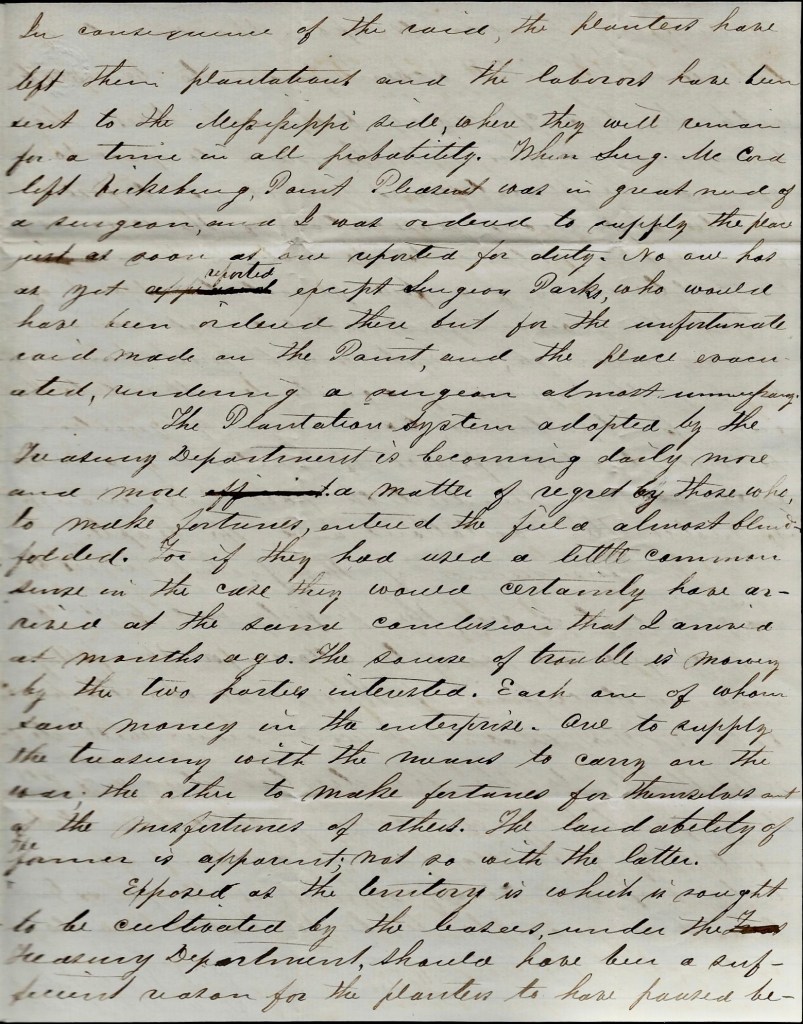 In consequence of the raid, the planters have
left their plantations and the laborors have been
sent to the Mississippi side, where they will remain
for a time in all probability. When Surg. McCord
left Vicksburg, Point Pleasent was in great need of
a surgeon, and I was ordered to supply the place
just as soon as one reported for duty. No one has
as yet reported except Surgeon Parks, who would
have been ordered there but for the unfortunate
raid made on the Point, and the place evacu
ated, rendering a surgeon almost unnessary.
The Plantation system adopted by the
Treasury Department is becoming daily more
and more a matter of regret by those who,
to make fortunes, entered the field almost blind-
folded. For if they had used a little common
sense in the case they would certainly have ar-
rived at the same conclusion that I arrived
at months ago. The sourse of trouble is money
by the two parties interested. Each one of whom
saw money in the enterprise. One to supply
the treasury with the means to carry on the
war; the other to make fortunes for themselves out
of the misfortunes of others. The laudability of
the former is apparent; not so with the latter.
Exposed as the territory is which is sought
to be cultivated by the leasees, under the
Treasury Department, should have been a suf-
ficient reason for the planters to have paused be-